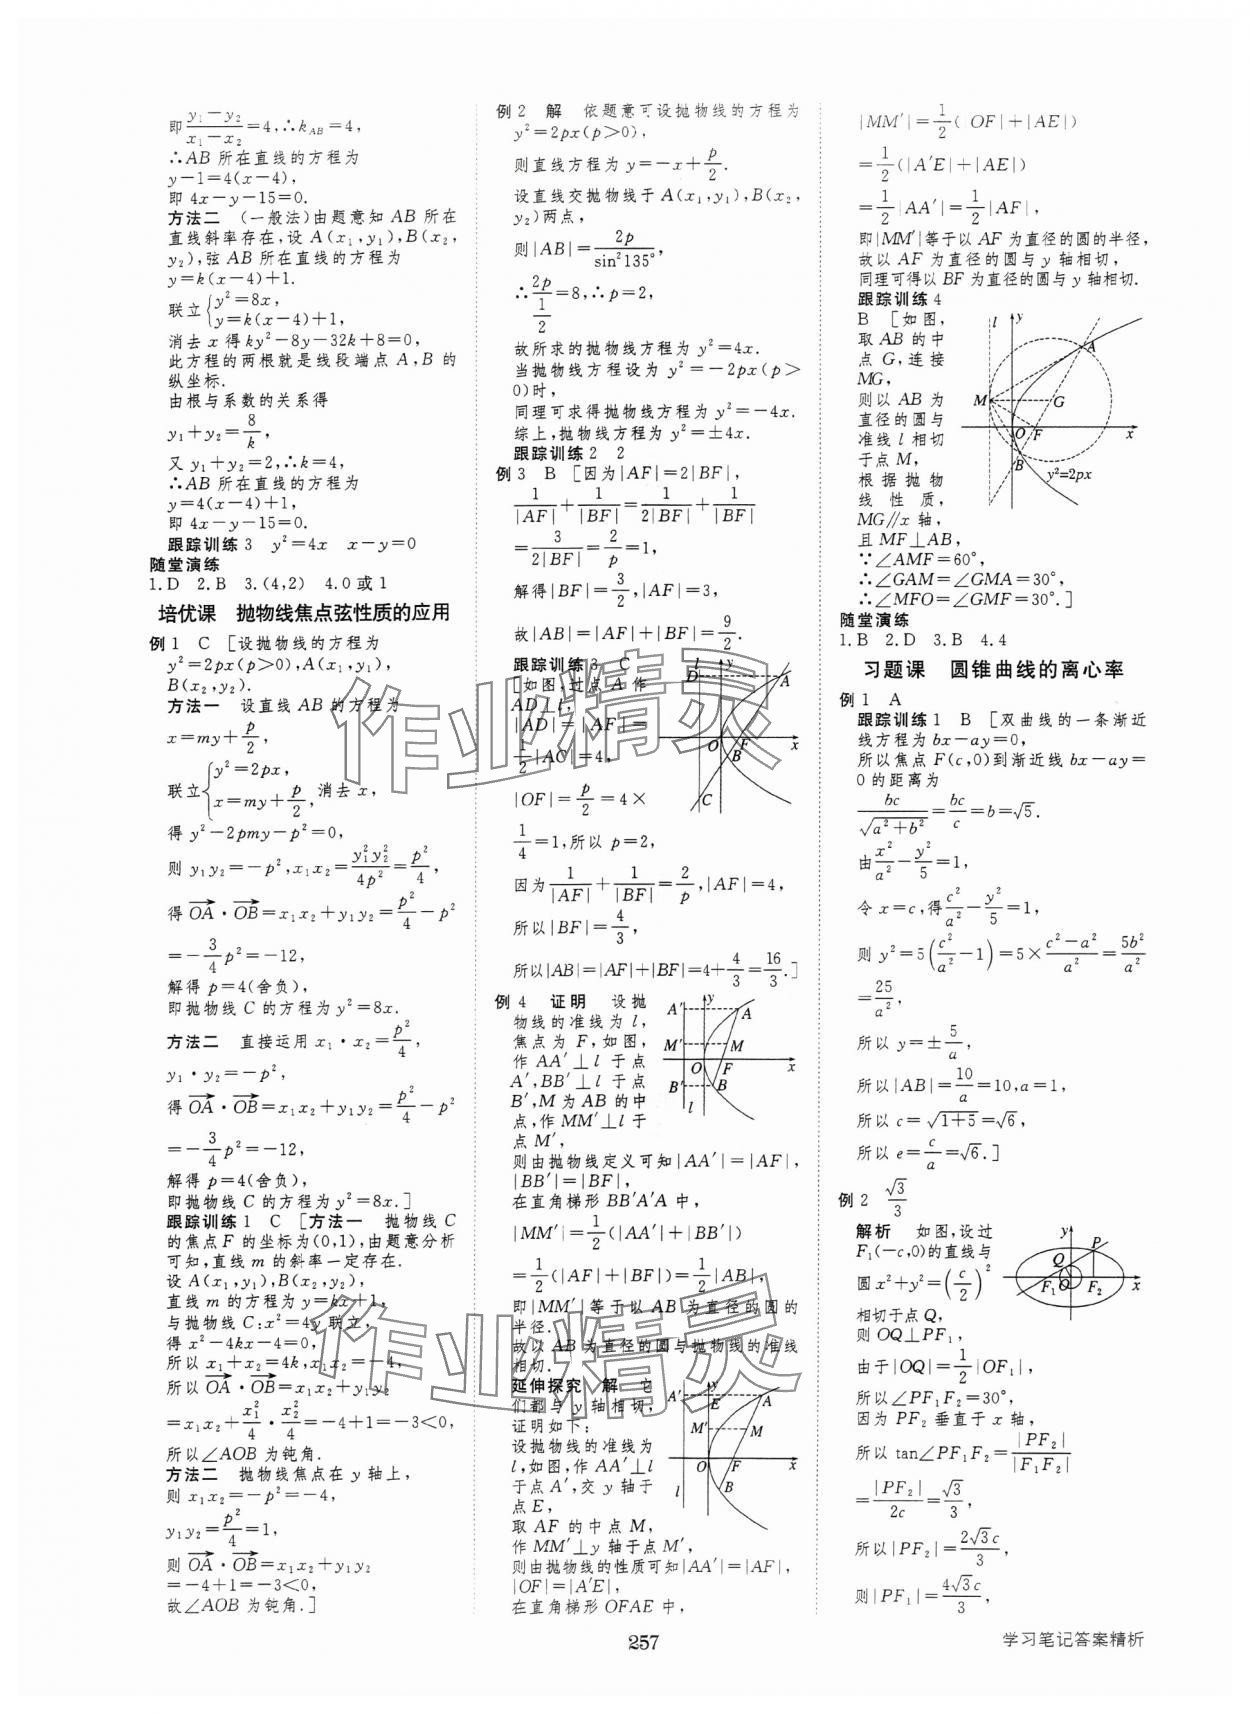 即(y₁-y₂)/(x₁-x₂)=4,∴k_AB=4,
∴AB 所在直线的方程为
y-1=4(x-4),
即 4x-y-15=0.
方法二 (一般法)由题意知 AB 所在
直线斜率存在,设 A(x₁,y₁),B(x₂,
y₂),弦 AB 所在直线的方程为
y=k(x-4)+1.
联立{y²=8x,
y=k(x-4)+1,
消去 x 得 ky²-8y-32k+8=0,
此方程的两根就是线段端点 A,B 的
纵坐标.
由根与系数的关系得
y₁+y₂=8/k,
又 y₁+y₂=2,∴k=4,
∴AB 所在直线的方程为
y=4(x-4)+1,
即 4x-y-15=0.
跟踪训练 3 y²=4x x-y=0
随堂演练
1.D 2.B 3.(4,2) 4.0 或 1
培优课 抛物线焦点弦性质的应用
例 1 C [设抛物线的方程为
y²=2px(p>0),A(x₁,y₁),
B(x₂,y₂).
方法一 设直线 AB 的方程为
x=my+p/2,
联立{y²=2px,
x=my+p/2,消去 x,
得 y²-2pmy-p²=0,
则 y₁y₂=-p²,x₁x₂=y₁²y₂²/4p²=p²/4,
得 OA·OB=x₁x₂+y₁y₂=p²/4-p²
=-3/4p²=-12,
解得 p=4(舍负),
即抛物线 C 的方程为 y²=8x.
方法二 直接运用 x₁·x₂=p²/4,
y₁·y₂=-p²,
得 OA·OB=x₁x₂+y₁y₂=p²/4-p²
=-3/4p²=-12,
解得 p=4(舍负),
即抛物线 C 的方程为 y²=8x.]
跟踪训练 1 C [方法一 抛物线 C
的焦点 F 的坐标为(0,1),由题意分析
可知,直线 m 的斜率一定存在.
设 A(x₁,y₁),B(x₂,y₂),
直线 m 的方程为 y=kx+1,
与抛物线 C:x²=4y 联立,
得 x²-4kx-4=0,
所以 x₁+x₂=4k,x₁x₂=-4,
所以 OA·OB=x₁x₂+y₁y₂
=x₁x₂+x₁²/4·x₂²/4=-4+1=-3<0,
所以∠AOB 为钝角.
方法二 抛物线焦点在 y 轴上,
则 x₁x₂=-p²=-4,
y₁y₂=p²/4=1,
则 OA·OB=x₁x₂+y₁y₂
=-4+1=-3<0,
故∠AOB 为钝角.]
例 2 解 依题意可设抛物线的方程为
y²=2px(p>0),
则直线方程为 y=-x+p/2.
设直线交抛物线于 A(x₁,y₁),B(x₂,
y₂)两点,
则|AB|=2p/sin²135°,
∴2p/(1/2)=8,∴p=2,
故所求的抛物线方程为 y²=4x.
当抛物线方程设为 y²=-2px(p>
0)时,
同理可求得抛物线方程为 y²=-4x.
综上,抛物线方程为 y²=±4x.
跟踪训练 2 2
例 3 B [因为|AF|=2|BF|,
1/|AF|+1/|BF|=1/2|BF|+1/|BF|
=3/2|BF|=2/p=1,
解得|BF|=3/2,|AF|=3,
故|AB|=|AF|+|BF|=9/2.
跟踪训练 3 C
[如图,过点 A 作
AD⊥l,
|AD|=|AF|=
1/2|AC|=4,
|OF|=p/2=4×
1/4=1,所以 p=2,
因为1/|AF|+1/|BF|=2/p,|AF|=4,
所以|BF|=4/3,
所以|AB|=|AF|+|BF|=4+4/3=16/3.]
l y D A O F x B C
例 4 证明 设抛
物线的准线为 l,
焦点为 F,如图,
作 AA′⊥l 于点
A′,BB′⊥l 于点
B′,M 为 AB 的中
点,作 MM′⊥l 于
点 M′,
则由抛物线定义可知|AA′|=|AF|,
|BB′|=|BF|,
在直角梯形 BB′A′A 中,
|MM′|=1/2(|AA′|+|BB′|)
=1/2(|AF|+|BF|)=1/2|AB|,
即|MM′|等于以 AB 为直径的圆的
半径.
故以 AB 为直径的圆与抛物线的准线
相切.
A′ y A M′ M O F x B′ B l
延伸探究 解 它
们都与 y 轴相切,
证明如下:
设抛物线的准线为
l,如图,作 AA′⊥l
于点 A′,交 y 轴于
点 E,
取 AF 的中点 M,
作 MM′⊥y 轴于点 M′,
则由抛物线的性质可知|AA′|=|AF|,
|OF|=|A′E|,
在直角梯形 OFAE 中,
A′ y E A M′ M O F x l B
|MM′|=1/2(|OF|+|AE|)
=1/2(|A′E|+|AE|)
=1/2|AA′|=1/2|AF|,
即|MM′|等于以 AF 为直径的圆的半径,
故以 AF 为直径的圆与 y 轴相切,
同理可得以 BF 为直径的圆与 y 轴相切.
跟踪训练 4
B [如图,
取 AB 的中
点 G,连接
MG,
则以 AB 为
直径的圆与
准线 l 相切
于点 M,
根据抛物
线性质,
MG∥x 轴,
且 MF⊥AB,
∵∠AMF=60°,
∴∠GAM=∠GMA=30°,
∴∠MFO=∠GMF=30°.]
l y A M G O F x B y²=2px
随堂演练
1.B 2.D 3.B 4.4
习题课 圆锥曲线的离心率
例 1 A
跟踪训练 1 B [双曲线的一条渐近
线方程为 bx-ay=0,
所以焦点 F(c,0)到渐近线 bx-ay=
0 的距离为
bc/√(a²+b²)=bc/c=b=√5.
由x²/a²-y²/5=1,
令 x=c,得c²/a²-y²/5=1,
则 y²=5(c²/a²-1)=5×(c²-a²)/a²=5b²/a²
=25/a²,
所以 y=±5/a,
所以|AB|=10/a=10,a=1,
所以 c=√(1+5)=√6,
所以 e=c/a=√6.]
例 2 √3/3
解析 如图,设过
F₁(-c,0)的直线与
圆 x²+y²=(c/2)²
相切于点 Q,
则 OQ⊥PF₁,
由于|OQ|=1/2|OF₁|,
所以∠PF₁F₂=30°,
因为 PF₂ 垂直于 x 轴,
所以 tan∠PF₁F₂=|PF₂|/|F₁F₂|
=|PF₂|/2c=√3/3,
所以|PF₂|=2√3c/3,
则|PF₁|=4√3c/3,
y P Q F₁ O F₂ x
作业精灵
作业精灵
257
学习笔记答案精析